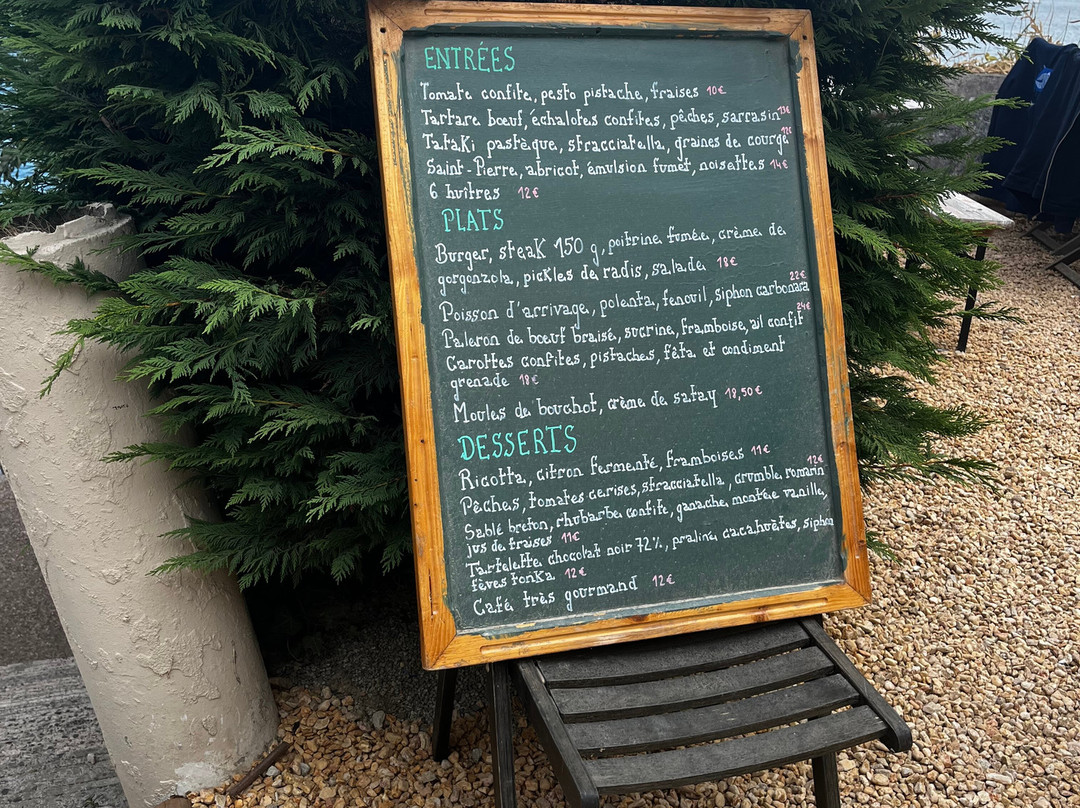 ENTRÉES
Tomate confite, pesto pistache, fraises 10€
Tartare bœuf, échalotes confites, pêches, sarrasin 13€
Tataki pastèque, stracciatella, graines de courge 12€
Saint-Pierre, abricot, émulsion fumet, noisettes 14€
6 huîtres 12€
PLATS
Burger, steak 150 g, poitrine fumée, crème de
gorgonzola, pickles de radis, salade 18€
Poisson d'arrivage, polenta, fenouil, siphon carbonara 22€
Paleron de bœuf braisé, sucrine, framboise, ail confit 24€
Carottes confites, pistaches, fêta et condiment
grenade 18€
Moules de bouchot, crème de satay 18,50€
DESSERTS
Ricotta, citron fermenté, framboises 11€
Pêches, tomates cerises, stracciatella, crumble romarin 12€
Sablé breton, rhubarbe confite, ganache montée vanille,
jus de fraises 11€
Tartelette chocolat noir 72%, praliné cacahuètes, siphon
fèves tonka 12€
Café très gourmand 12€